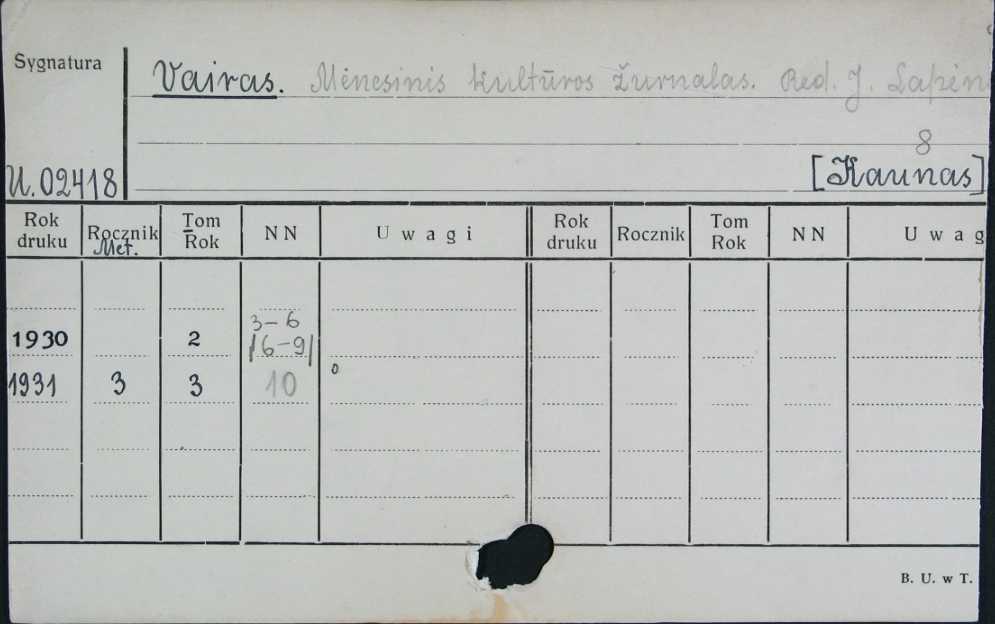 Sygnatura
Vairas. Mėnesinis kultūros žurnalas. Red. J. Lapėn
8
U. 02418 [Kaunas]
Rok druku Rocznik Met. Tom Rok NN Uwagi Rok druku Rocznik Tom Rok NN Uwag
3-6
1930 2 /6-9/
1931 3 3 10
B. U. w T.